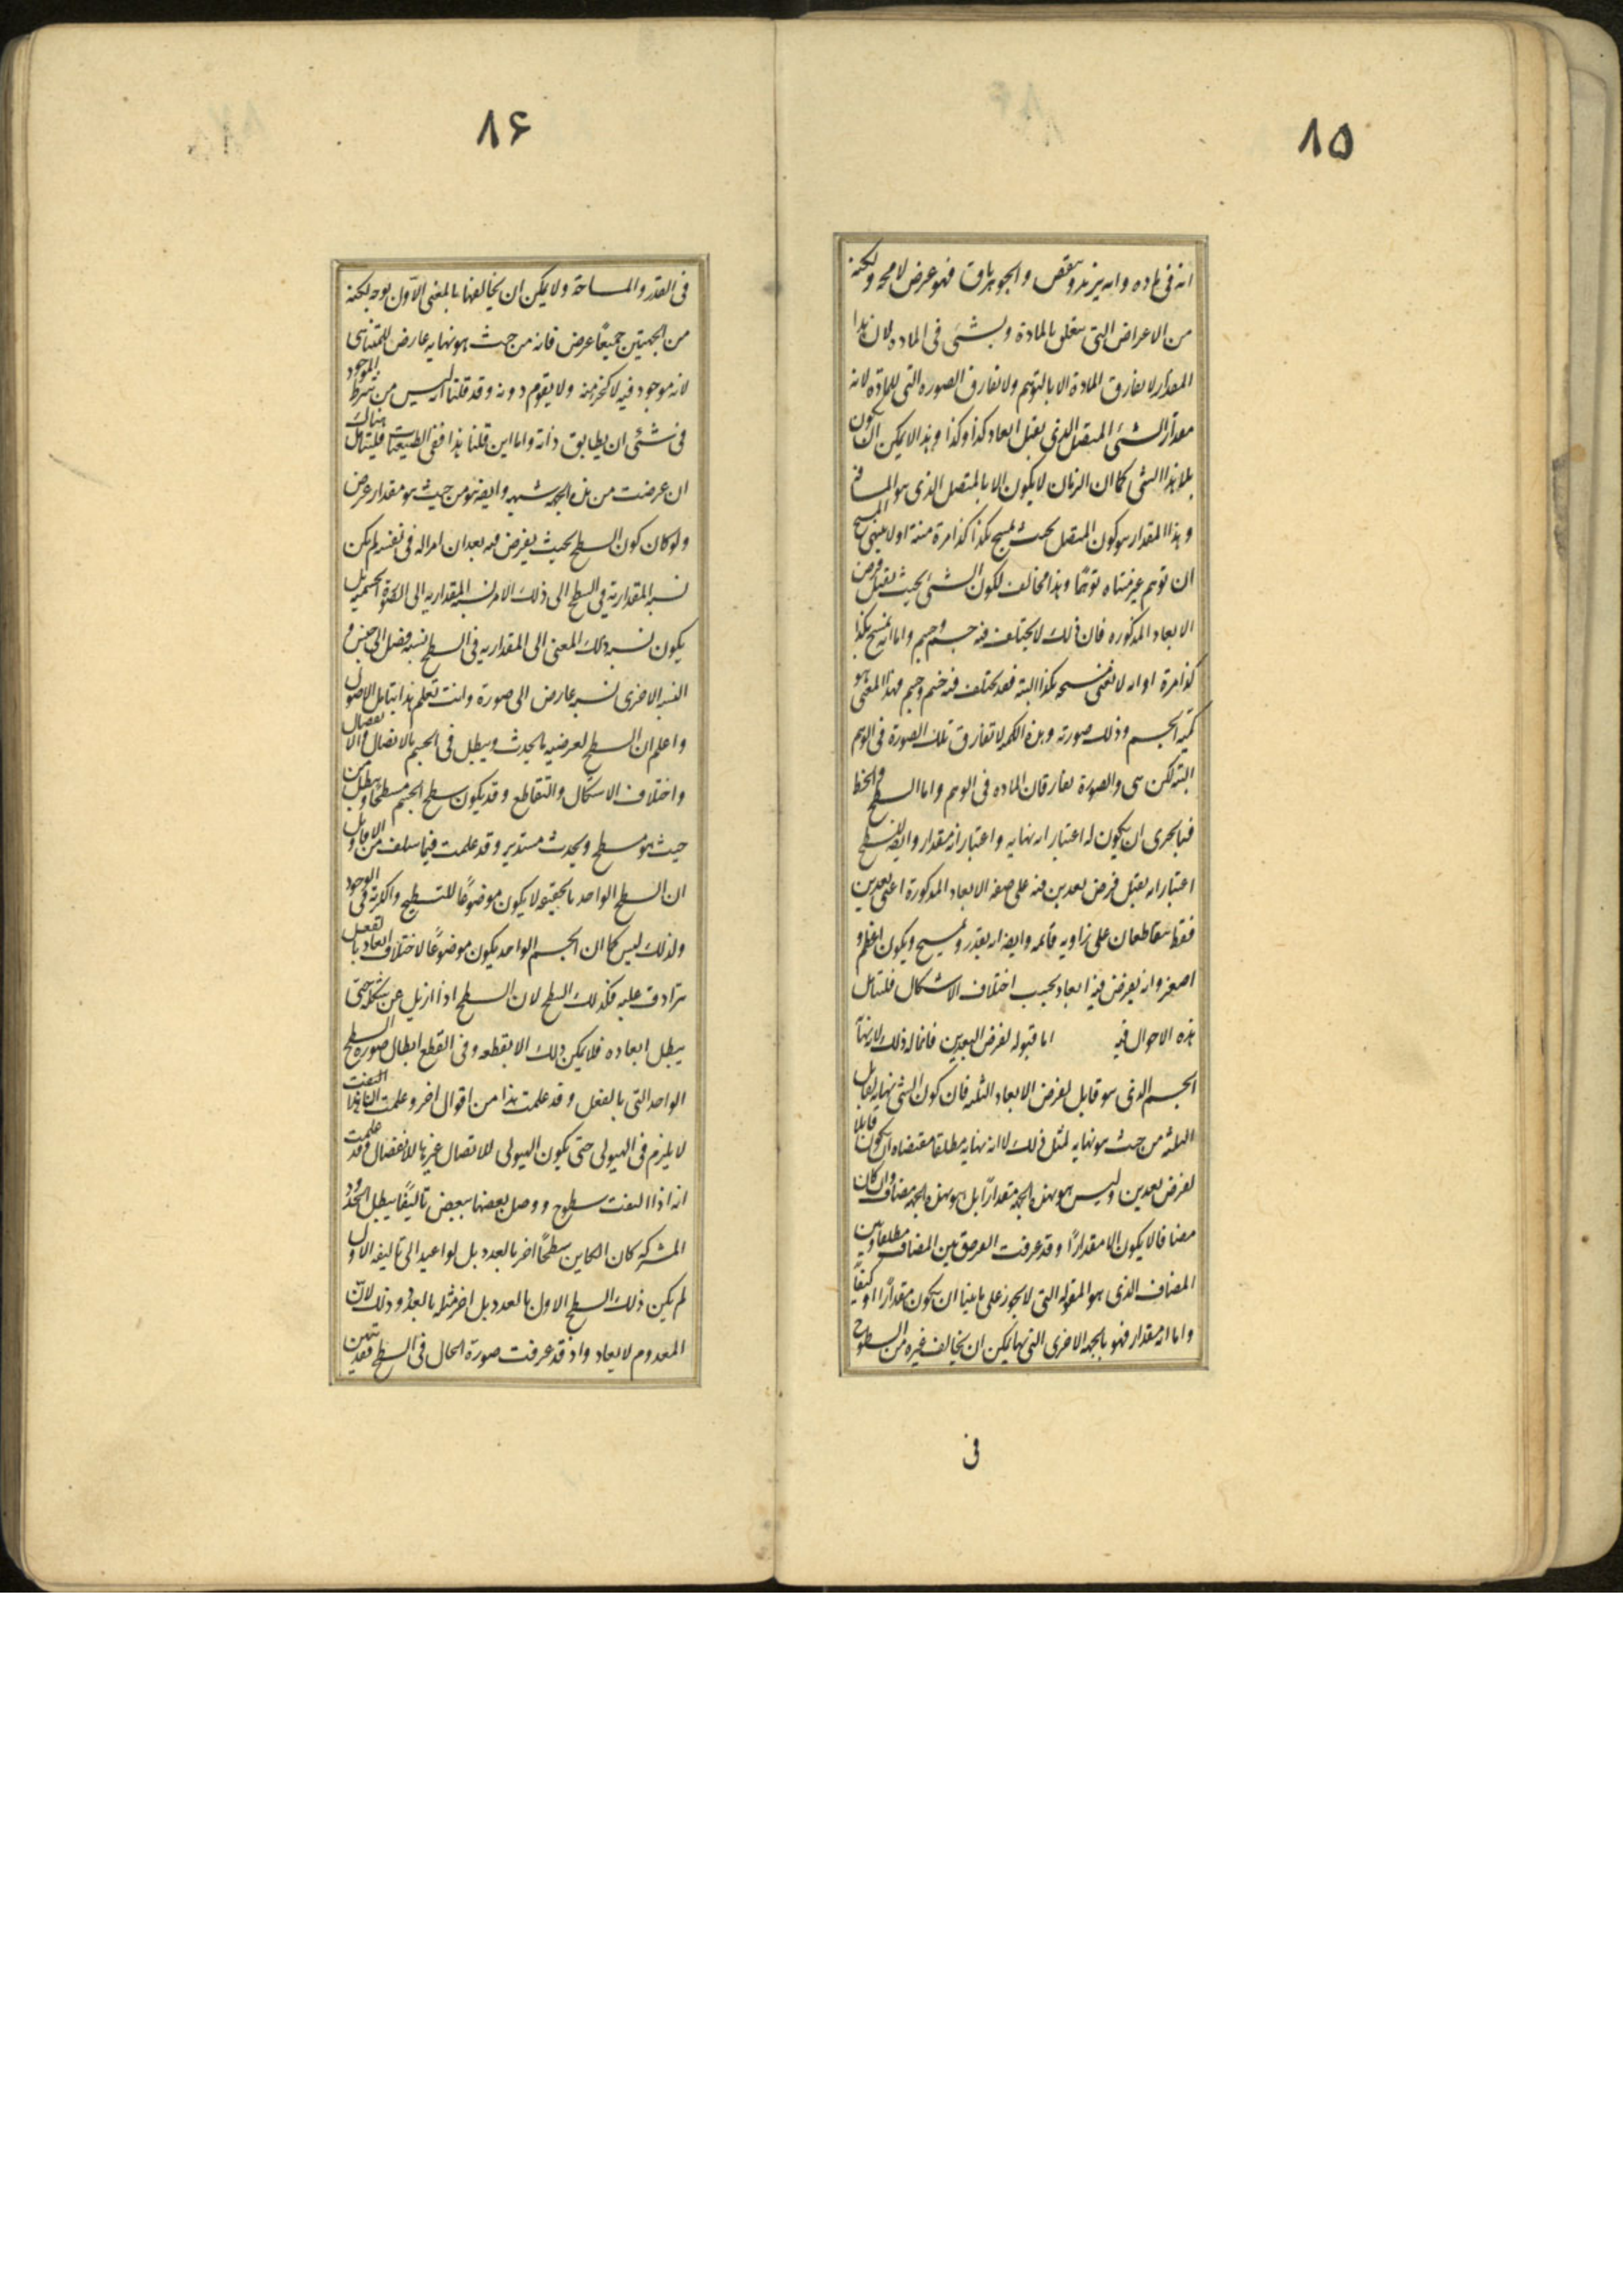 ۸۵
انه فی ماده وانه یزید وینقص والجوهر باق فهو عرض لا محه ولکنه
من الاعراض التی یتعلق بالمادة وبشئ فی الماده لان هذا
المقدار لا یفارق المادة الا بالتوهم ولا یفارق الصوره التی للمادّه لانه
مقدار الشئ المتصل الذی یقبل ابعاد کذا وکذا وهذا لا یمکن ان یکون
بلا هذا الشئ کما ان الزمان لا یکون الا بالمتصل الذی هو المسافه
وهذا المقدار هو کون المتصل بحیث یمسح بکذا کذا مرة او لا ینتهی المسح
ان توهم غیر متناه توهّمًا وهذا مخالف لکون الشئ بحیث یقبل فرض
الابعاد المذکوره فان ذلک لا یختلف فیه جسم وجسم واما انه یمسح بکذا
کذا مرة او انه لا یفنی مسحه بکذا البته فقد یختلف فیه جسم وجسم فهذا المعنی هو
کمیه الجسم وذلک صورته وهذه الکمیه لا تفارق تلک الصورة فی الوهم
البته لکن هی والصورة تفارقان الماده فی الوهم واما السطح والخط
فبالحری ان یکون له اعتبار انه نهایه واعتبار انه مقدار وایضه للسطح
اعتبار انه یقبل فرض بعدین فیه علی صفه الابعاد المذکورة اعنی بعدین
فقط یتقاطعان علی زاویه قائمه وایضه انه یقدر ویمسح ویکون اعظم و
اصغر وانه یفرض فیه ابعاد بحسب اختلاف الاشکال فلیتامل
هذه الاحوال فیه اما قبوله لفرض البعدین فانما له ذلک لانه نهایة
الجسم الذی هو قابل لفرض الابعاد الثلثه فان کون الشئ نهایه لقابل
الثلثه من حیث هو نهایه لمثل ذلک لا انه نهایه مطلقا مقتضاه ان یکون قابلا
لفرض بعدین ولیس هو بهذه الجهه مقدارًا بل هو بهذه الجهه مضاف وان کان
مضافا لا یکون الا مقدارًا وقد عرفت الفرق بین المضاف مطلقا وبین
المضاف الذی هو المقوله التی لا یجوز علی ما بینا ان یکون مقدارًا او کیفًا
واما انه مقدار فهو بالجهه الاخری التی بها یمکن ان یخالف غیره من السطوح
فی
۸۶
فی القدر والمساحة ولا یمکن ان یخالفها بالمعنی الاوّل بوجه لکنه
من الجهتین جمیعًا عرض فانه من حیث هو نهایه عارض للمتناهی
لانه موجود فیه لا کجزء منه ولا یقوم دونه وقد قلنا انه لیس من شرط الموجود
فی شئ ان یطابق ذاته واما این قلنا هذا ففی الطبیعیات فلیتامل هناک
ان عرضت من هذه الجهه شبهه وایضه هو من حیث هو مقدار عرض
ولو کان کون السطح بحیث یفرض فیه بعدان امرا له فی نفسه لم یکن
نسبه المقداریة فی السطح الی ذلک الامر نسبه المقداریه الی الصورة الجسمیه بل
یکون نسبه ذلک المعنی الی المقداریه فی السطح نسبه فصل الی جنس و
النسبه الاخری نسبه عارض الی صورة وانت تعلم هذا بتامل الاصول
واعلم ان السطح لعرضیه ما یحدث ویبطل فی الجسم بالاتصال والانفصال
واختلاف الاشکال والتقاطع وقد یکون سطح الجسم مسطحًا ویبطل من
حیث هو مسطح ویحدث مستدیر وقد علمت فیما سلف من الاقاویل
ان السطح الواحد بالحقیقه لا یکون موضوعًا للتسطیح والکریّة فی الوجود
ولذلک لیس کما ان الجسم الواحد یکون موضوعًا لاختلاف ابعاد بالفعل
تترادف علیه فکذلک السطح لان السطح اذا ازیل عن شکله حتی
یبطل ابعاده فلا یمکن ذلک الا بقطعه وفی القطع ابطال صوره السطح
الواحد التی بالفعل وقد علمت هذا من اقوال اخر وعلمت
لا یلزم فی الهیولی حتی یکون الهیولی للاتصال غیرها للانفصال وقد علمت
انه اذا الفت سطوح ووصل بعضها ببعض تالیفًا یبطل الحدود
المشترکه کان الکاین سطحًا اخر بالعدد بل لو اعید الی تالیفه الاول
لم یکن ذلک السطح الاول بالعدد بل اخر مثله بالعدد وذلک لانّ
المعدوم لا یعاد واذ قد عرفت صورة الحال فی السطح فقد